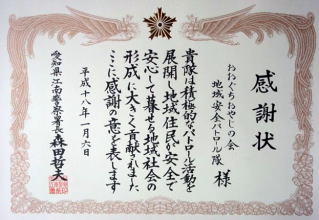 感謝状
おおぐちおやじの会
地域安全パトロール隊 様
貴隊は積極的なパトロール活動を
展開し地域住民が安全で
安心して暮せる地域社会の
形成に大きく貢献されました
ここに感謝の意を表します
平成十八年一月六日
愛知県江南警察署長 森田哲夫